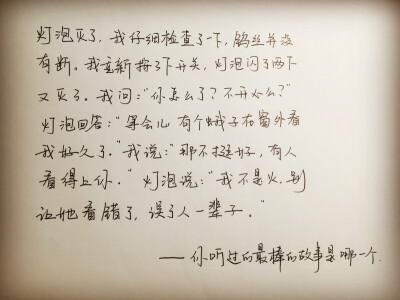 灯泡灭了，我仔细检查了一下，钨丝并没
有断。我重新按了下开关，灯泡闪了两下
又灭了。我问："你怎么了？不开心么？"
灯泡回答："等会儿 有个蛾子在窗外看
我好久了。"我说："那不挺好，有人
看得上你。" 灯泡说："我不是火，别
让她看错了，误了人一辈子。"
——你听过的最棒的故事是哪一个.